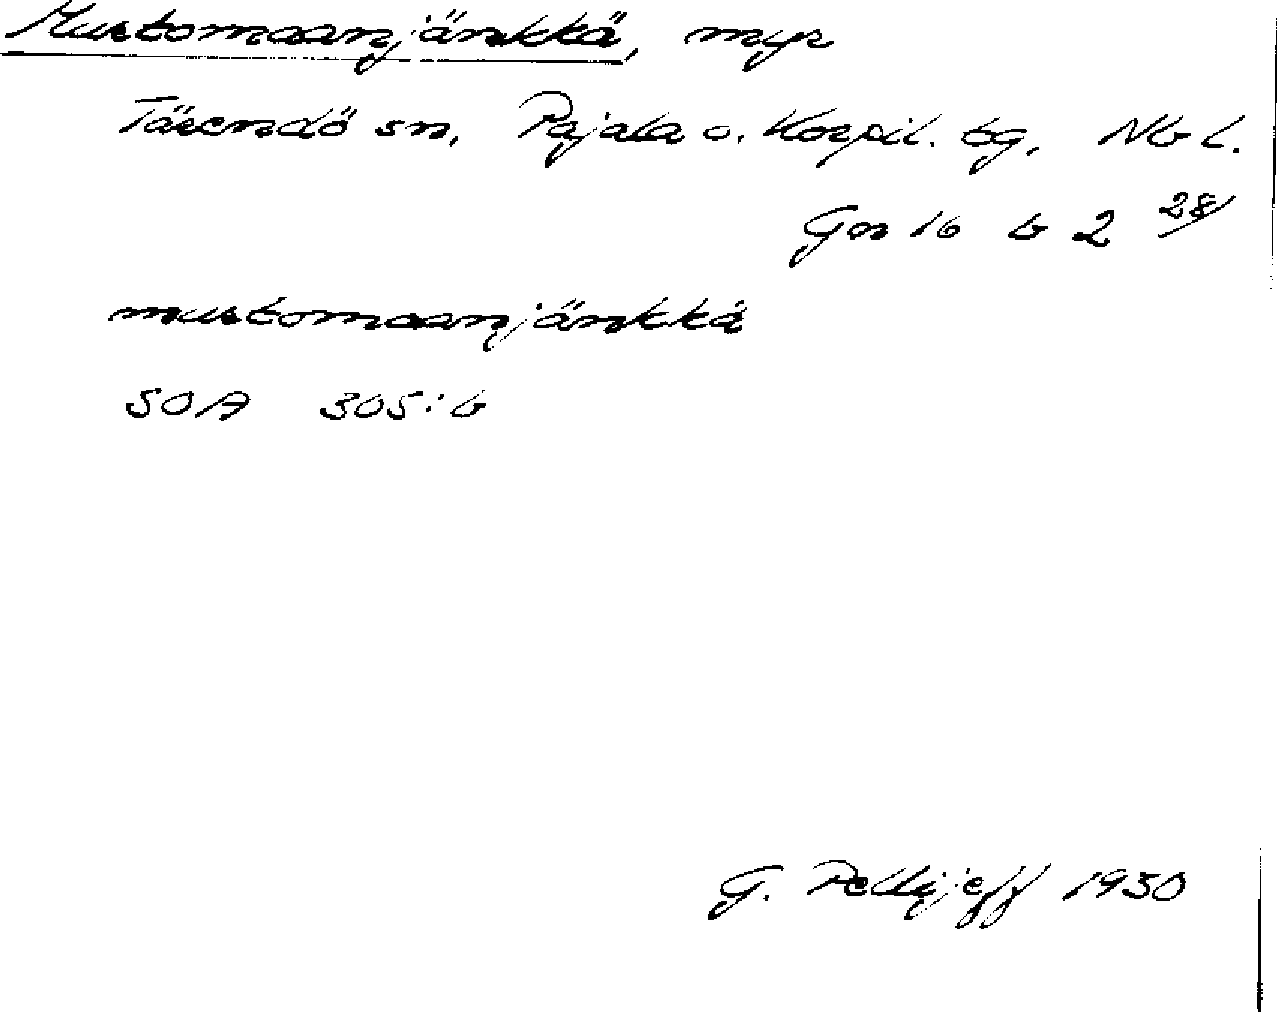 Mustomaanjänkkä, myr
Tärendö sn, Pajala o. Korpil. tg, Nb l.
Gn 16 b 2 28/
mustomaanjänkkä
SOA 305:b
G. Pellijeff 1950